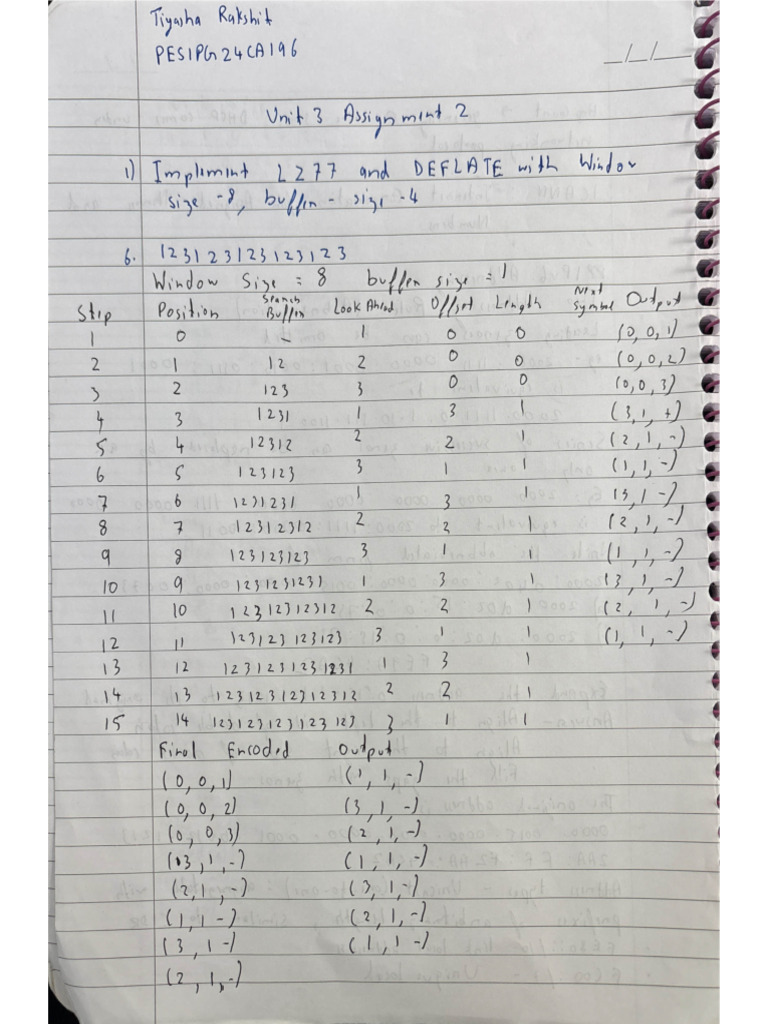 Tiyasha Rakshit
PES1PG24CA196
_/_/_
Unit 3 Assignment 2
1) Implement LZ77 and DEFLATE with Window
size -8, buffer - size -4
6. 123123123123123
Window Size = 8 buffer size = 1
Step Position Search Buffer Look Ahead Offset Length Next Symbol Output
1 0 - 1 0 0 (0,0,1)
2 1 12 2 0 0 (0,0,2)
3 2 123 3 0 0 (0,0,3)
4 3 1231 1 3 1 (3,1,+)
5 4 12312 2 2 1 (2,1,-)
6 5 123123 3 1 1 (1,1,-)
7 6 1231231 1 3 1 (3,1-)
8 7 12312312 2 2 1 (2,1,-)
9 8 123123123 3 1 1 (1,1,-)
10 9 1231231231 1 3 1 (3,1,-)
11 10 12312312312 2 2 1 (2,1,-)
12 11 123123123123 3 1 1 (1,1,-)
13 12 1231231231231 1 3 1
14 13 12312312312312 2 2 1
15 14 123123123123123 3 1 1
Final Encoded Output
(0,0,1) (1,1,-)
(0,0,2) (3,1,-)
(0,0,3) (2,1,-)
(3,1,-) (1,1,-)
(2,1,-) (3,1,-)
(1,1-) (2,1,-)
(3,1-) (1,1-)
(2,1,-)